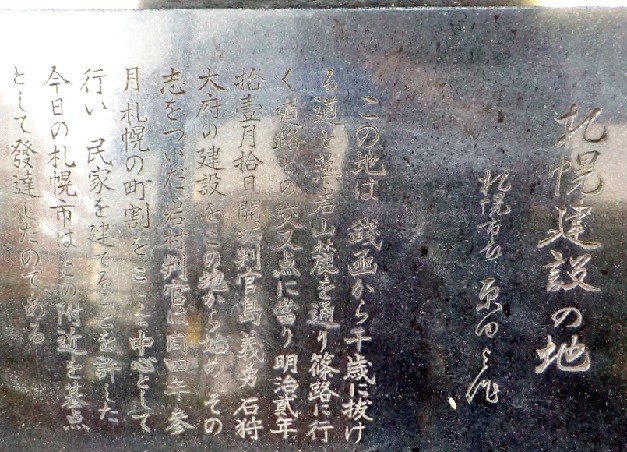 札幌建設の地
札幌市長 原田与作
この地は 銭函から千歳に抜け
る道と 藻岩山麓を通り篠路に行
く道路との交叉点に當り 明治貳年
拾壹月拾日 開拓判官島 義勇 石狩
大府の建設をこの地から始め その
志をついだ 岩村判官は同四年 参
月 札幌の町割をここを中心として
行い 民家を建てることを許した
今日の札幌市は この附近を基点
として發達したのである